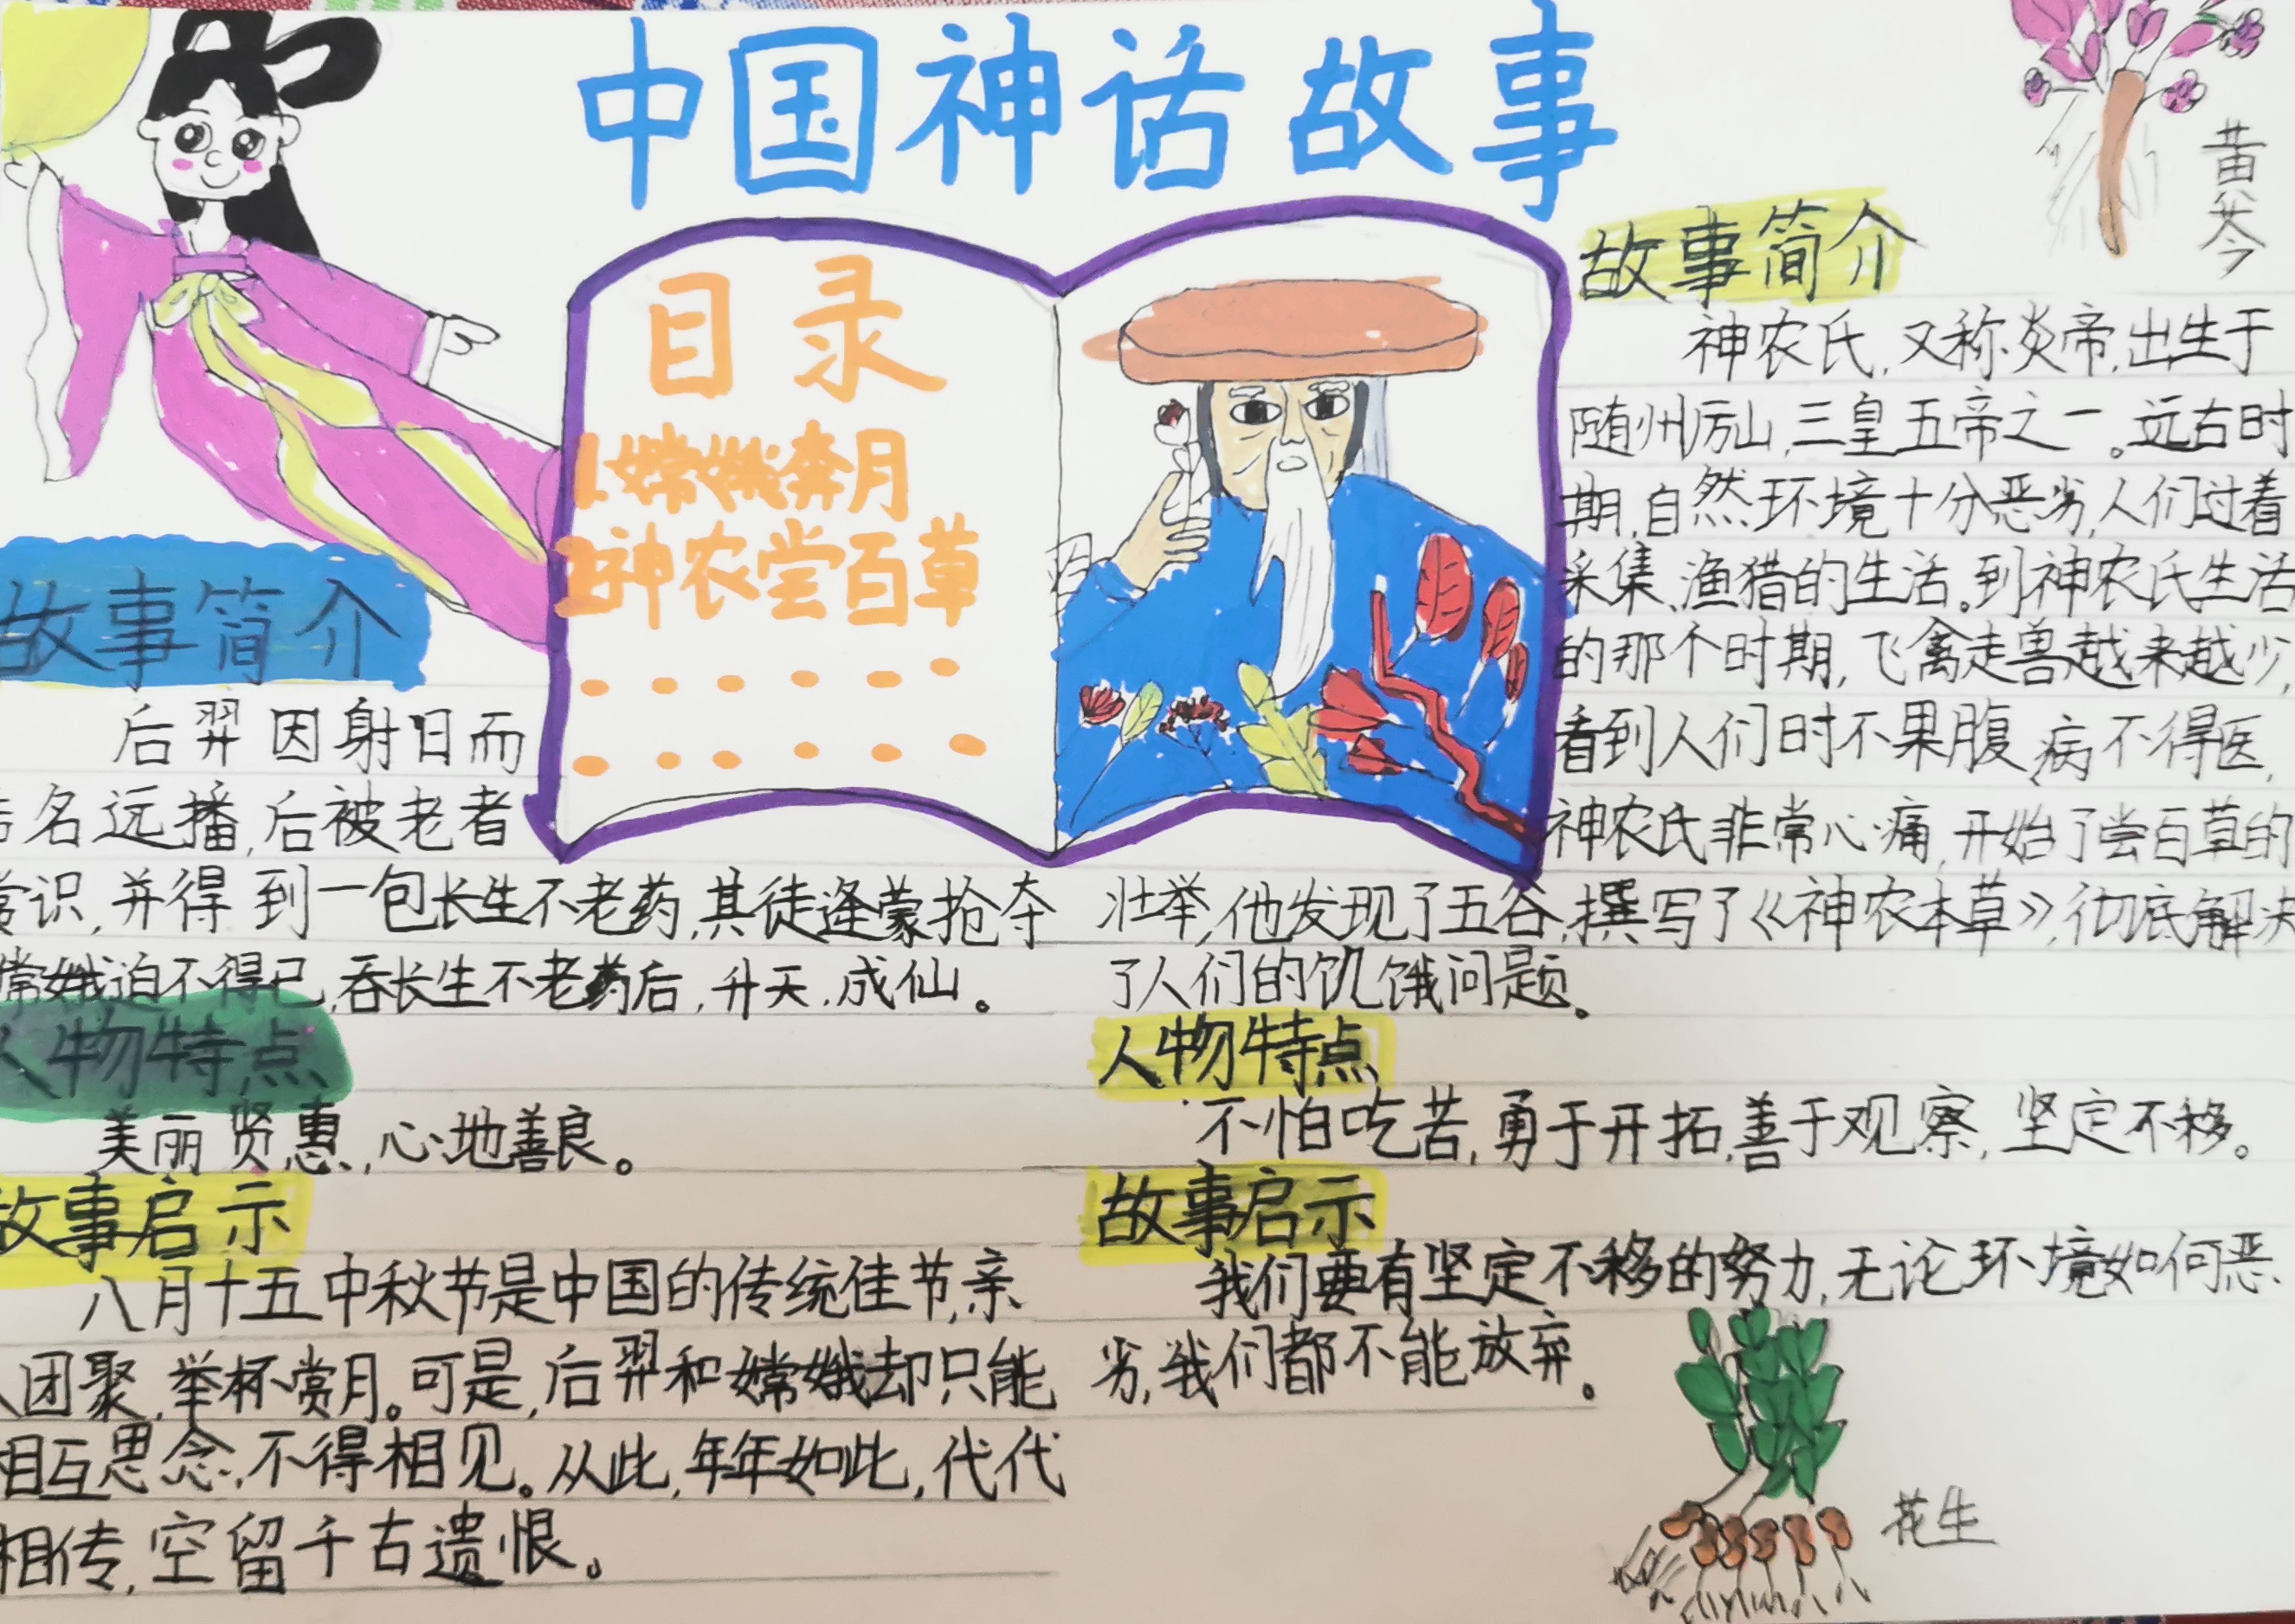 中国神话故事
目录
1.嫦娥奔月
2.神农尝百草
故事简介
后羿因射日而
名远播,后被老者
常识,并得到一包长生不老药,其徒逢蒙抢夺
嫦娥迫不得已,吞长生不老药后,升天,成仙。
人物特点
美丽贤惠,心地善良。
故事启示
八月十五中秋节是中国的传统佳节,亲
人团聚,举杯赏月。可是,后羿和嫦娥却只能
相互思念,不得相见。从此,年年如此,代代
相传,空留千古遗恨。
黄芩
故事简介
神农氏,又称炎帝,出生于
随州厉山,三皇五帝之一。远古时
期,自然环境十分恶劣,人们过着
采集、渔猎的生活。到神农氏生活
的那个时期,飞禽走兽越来越少,
看到人们时不果腹,病不得医,
神农氏非常心痛,开始了尝百草的
壮举,他发现了五谷,撰写了《神农本草》,彻底解决
了人们的饥饿问题。
人物特点
不怕吃苦,勇于开拓,善于观察,坚定不移。
故事启示
我们要有坚定不移的努力,无论环境如何恶
劣,我们都不能放弃。
花生